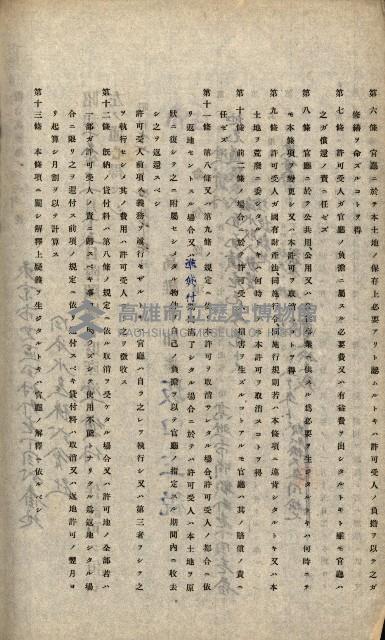 第六條 官廳ニ於テ本土地ノ保存上必要アリト認ムルトキハ許可受人ノ負擔ヲ以テ之ガ
修繕ヲ命ズルコトヲ得
第七條 許可受人ガ官廳ノ負擔ニ屬スル必要費又ハ有益費ヲ出シタルトキト雖モ官廳ハ
之ガ償還ノ責ニ任ゼズ
第八條 官廳ニ於テ公共用、公用又ハ公益事業ニ供スル爲必要ヲ生ジタルトキハ何時ニテ
モ本條項ヲ變更シ又ハ本許可ヲ取消スコトヲ得
第九條 許可受人ガ國有財產法同施行令同施行規則若ハ本條項ニ違背シタルトキ又ハ本
土地ヲ荒廢ニ委シタルトキハ何時ニテモ本許可ヲ取消スコトヲ得
第十條 前二條ノ場合ニ於テ許可受人ニ損害ヲ生ズルコトアルモ官廳ハ其ノ賠償ノ責ニ
任ゼズ
第十一條 第八條又ハ第九條ノ規定ニ依リ許可ヲ取消サレタル場合、許可受人ノ都合ニ依
リ返地セントスル場合又ハ準貸付期間滿了シタル場合ニ於テハ許可受人ハ本土地ヲ原
狀ニ復シ之ニ附屬セシメタル物件ハ自己ノ負擔ヲ以テ官廳ノ指定スル期間內ニ收去
シ之ヲ返還スベシ
許可受人前項ノ義務ヲ履行セザルトキハ官廳ハ自ラ之レヲ執行シ又ハ第三者ヲシテ之
ヲ執行セシメ其ノ費用ハ許可受人ヨリ之ヲ徵收ス
第十二條 旣納ノ貸付料ハ第八條ノ規定ニ依リ取消ヲ受ケタル場合又ハ許可地ノ全部若ハ
一部ガ許可受人ノ責ニ歸スベキ事由ニ因ラズシテ使用不能トナリタル爲返地シタル場
合ニ限リ之ヲ還付ス前項ノ規定ニ依リ還付スベキ貸付料ハ取消又ハ返地許可ノ翌月ヨ
リ起算シ月割ヲ以テ計算ス
第十三條 本條項ニ關シ解釋上疑義ヲ生ジタルトキハ官廳ノ解釋ニ依ルベシ
高雄市立歷史博物館
KAOHSIUNG MUSEUM OF HISTORY